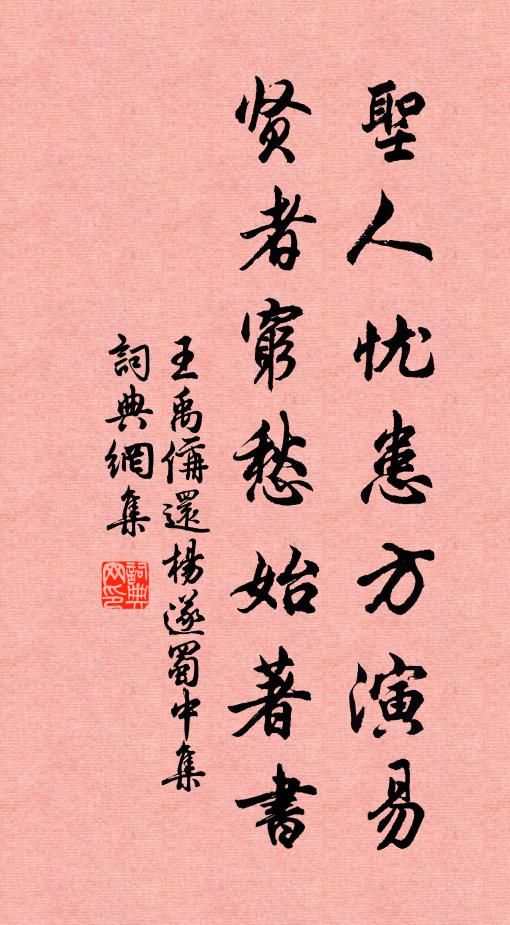 聖人忧患方演易
贤者窮愁始著書
王禹偁還楊遂蜀中集
詞典網集
詞典
网印